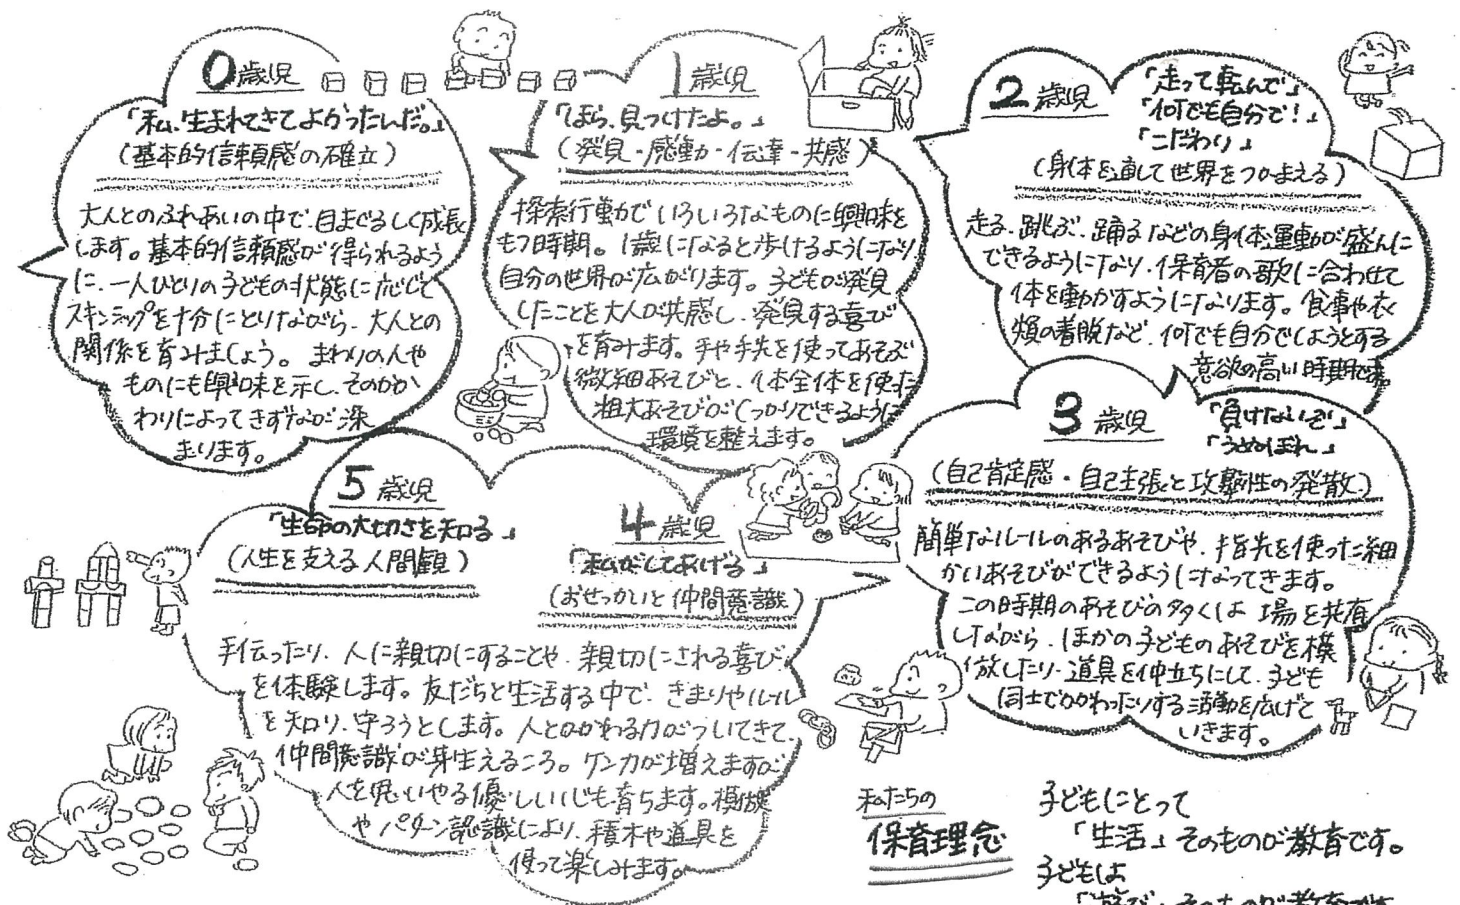 0歳児
「私、生まれてきてよかったんだ。」
(基本的信頼感の確立)
大人とのふれあいの中で、目まぐるしく成長
します。基本的信頼感が得られるよう
に、一人ひとりの子どもの状態に応じて
スキンシップを十分にとりながら、大人との
関係を育みましょう。まわりの人や
ものにも興味を示し、そのかか
わりによってきずなが深
まります。
1歳児
「ほら、見つけたよ。」
(発見・感動・伝達・共感)
探索行動でいろいろなものに興味を
もつ時期。1歳になると歩けるようになり
自分の世界が広がります。子どもが発見
したことを大人が共感し、発見する喜び
を育みます。手や手先を使ってあそぶ
微細あそびと、体全体を使った
粗大あそびがしっかりできるように
環境を整えます。
2歳児
「走って転んで」
「何でも自分で!」
「こだわり」
(身体を通して世界をつかまえる)
走る、跳ぶ、踊るなどの身体運動が盛んに
できるようになり、保育者の歌に合わせて
体を動かすようになります。食事や衣
類の着脱など、何でも自分でしようとする
意欲の高い時期です。
3歳児
「負けないぞ」
「うぬぼれ」
(自己肯定感・自己主張と攻撃性の発散)
簡単なルールのあるあそびや、指先を使った細
かいあそびができるようになってきます。
この時期のあそびの多くは 場を共有
しながら、ほかの子どものあそびを模
倣したり、道具を仲立ちにして、子ども
同士でかかわったりする活動を広げて
いきます。
5歳児
「生命の大切さを知る」
(人生を支える人間観)
4歳児
「私がしてあげる」
(おせっかいと仲間意識)
手伝ったり、人に親切にすることや、親切にされる喜び
を体験します。友だちと生活する中で、きまりやルール
を知り、守ろうとします。人とかかわる力がついてきて、
仲間意識が芽生えるころ。ケンカが増えますが
人を思いやる優しい心も育ちます。模倣
やパターン認識により、積木や道具を
使って楽しみます。
私たちの
保育理念
子どもにとって
「生活」そのものが教育です。
子どもは
「遊び」そのものが教育です